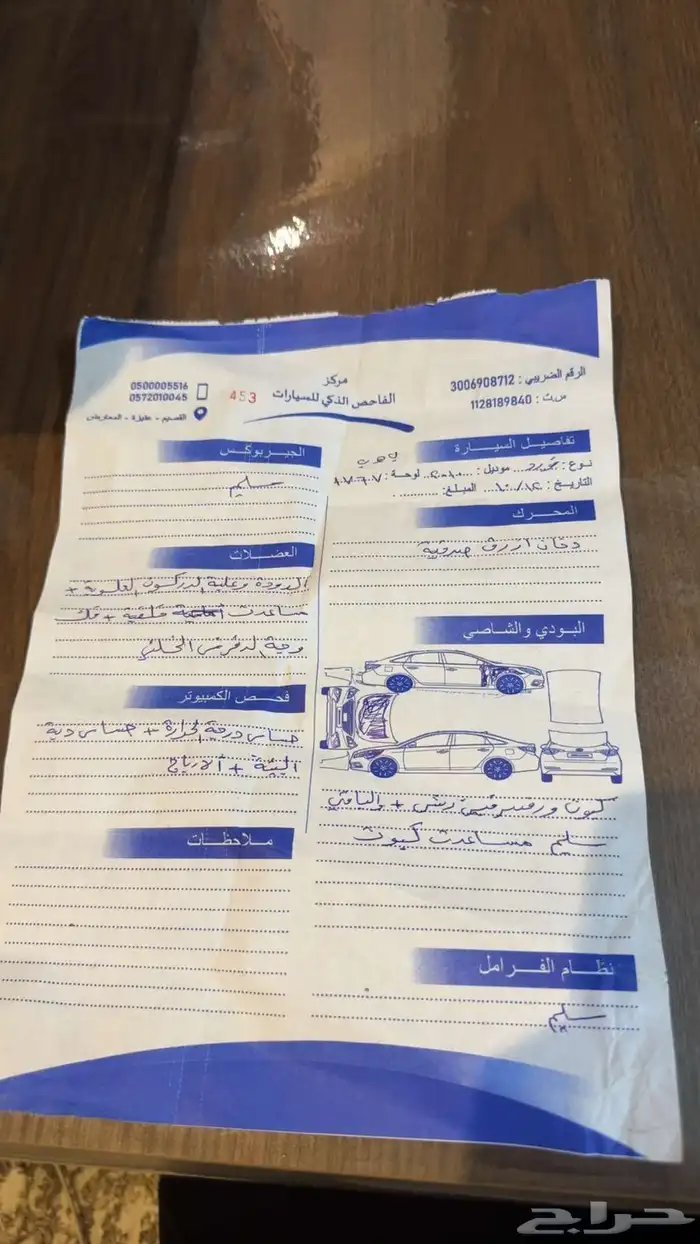 الرقم الضريبي : 3006908712
س.ت : 1128189840
مركز
الفاحص الذكي للسيارات
453
0500005516
0572010045
القصيم - عنيزة - المعارض
تفاصيل السيارة
نوع : فورد موديل : ٢٠١٠ لوحة :
التاريخ : المبلغ :
المحرك
دخان ازرق صرفية
البودي والشاصي
كبوت ورفرف يمين رش + والباقي
سليم مساعدت كبوت
نظام الفرامل
سليم
الجيربوكس
سليم
العضلات
الدودة وعلبة الدركسون العلوية +
مساعدت خلفية + فك
وجه الدفرنس الخلفي
فحص الكمبيوتر
حساس درجة الحرارة + حساس دبة
البيئة + الارباق
ملاحظات
حراج